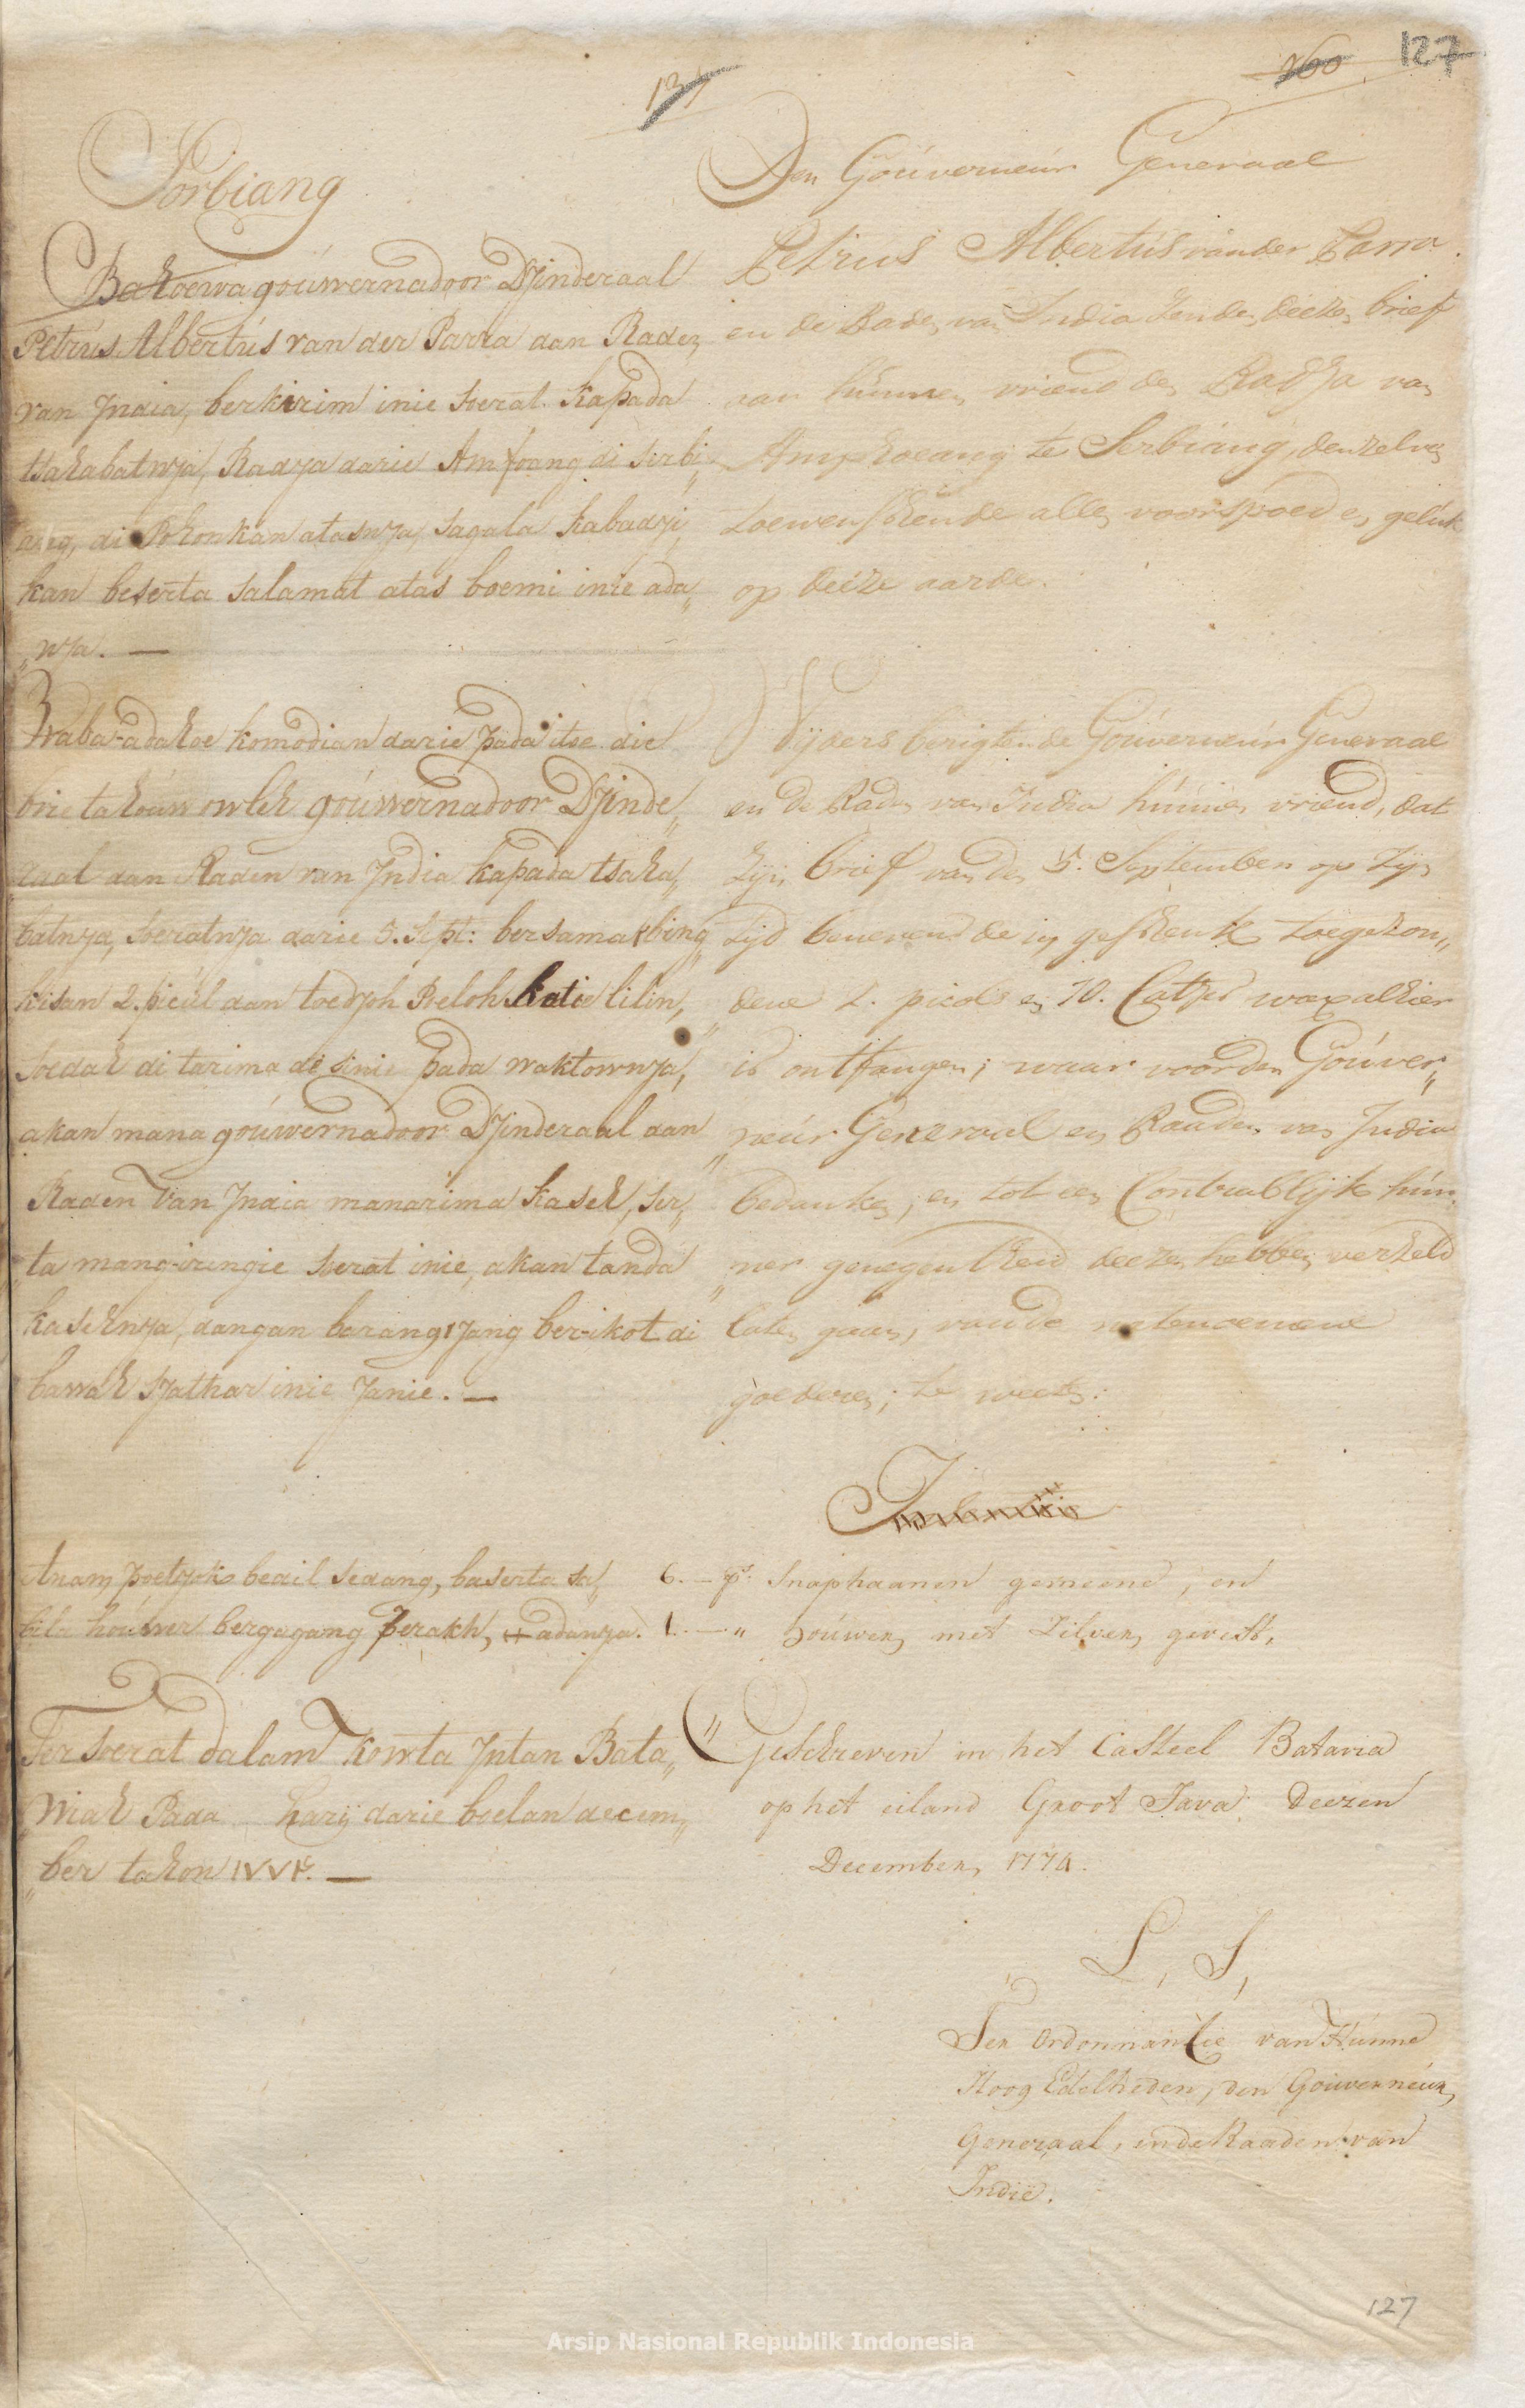 131
160
127
Sorbiang
Bakoewa gouwernadoor Djinderaal
Petrus Albertus van der Parra dan Raden
van India, berkirim inie soerat kapada
tsahabatnja, Radja darie Amfoang di Serbi„
ang, di Pohonkan atasnja, sagala kabadji„
kan beserta salamat atas boemi inie ada„
„nja. —
Waba-adahoe komodian darie pada itoe die
brietahouw owleh gouwernadoor Djinde„
raal dan Raden van India kapada tsaha„
batnja, soeratnja darie 5. Sept: bersama bing„
kisan 2. picul dan toedjoh Poeloh katie lilin,
soedah di tarima di sinie pada waktownja,
akan mana gouwernadoor Djinderaal dan
Raden van India manarima kaseh, ser„
ta mangiringie soerat inie, akan tanda
kasehnja, dangan barang jang ber-ikot di
bawah sjathar inie Janie. —
Anam poetjok bedil sedang, baserta sa„
bila houwer bergagang perakh, adanja.
Tersoerat dalam kowta Intan Bata„
„wiah Pada harij darie boelan decem„
„ber tahon ١٧٧٤. —
Den Gouverneur Generaal
Petrus Albertus van der Parra
en de Raden van India zenden deezen brief
aan hunnen vriend den Radja van
Amphoeang te Serbiang, denzelven
toewenschende alle voorspoed en geluk
op deeze aarde.
Wijders berigten de Gouverneur Generaal
en de Raden van India hunnen vriend, dat
zijn brief van den 5. September op zijn
tijd benevens de in geschenk toegezon„
dene 2. picols en 70. Catjes wax alhier
is ontfangen; waar voor den Gouver„
„neur Generaal en Raaden van India
bedanken, en tot een Contrablijk hun„
ner genegentheid deezen hebben verzeld
laten gaan, van de natenoemene
goederen; te weeten:
6. — ps. Snaphaanen gemeene, en
1. — „ houwer, met zilver, gevest,
Geschreven in het Casteel Batavia
op het eiland Groot Java. Deezen
December, 1774.
L, S,
Ter ordonnantie van Hunne
Hoog Edelheden, den Gouverneur,
Generaal, en de Raaden van
Indië.
127
Arsip Nasional Republik Indonesia